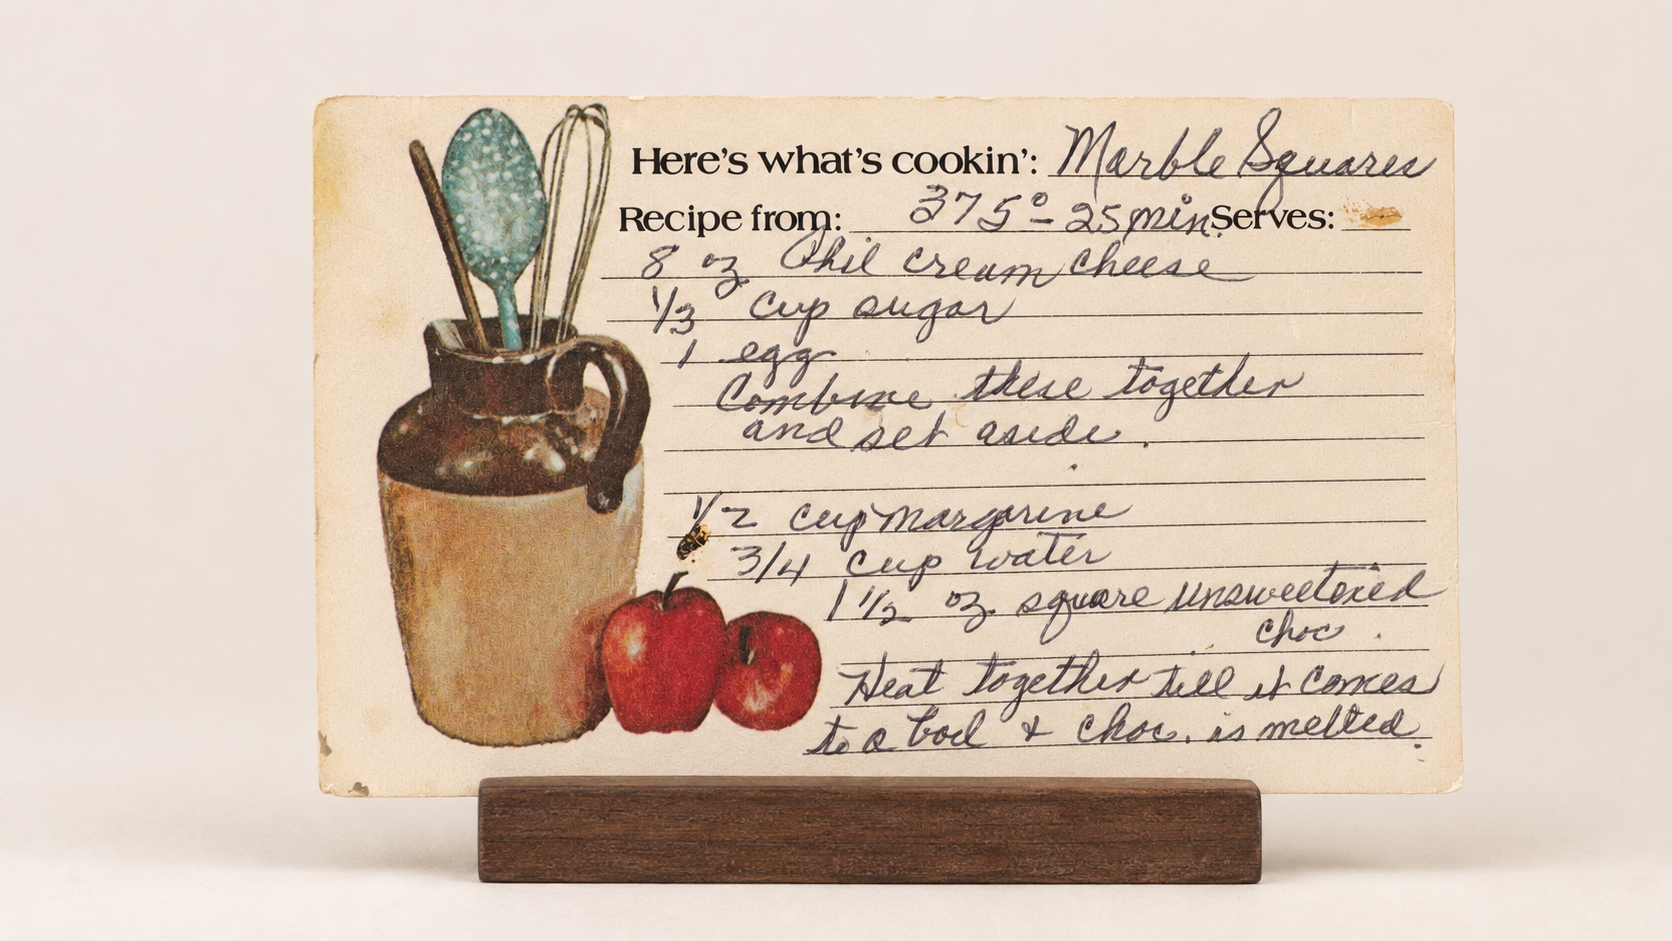 Here's what's cookin': Marble Squares
Recipe from: 375° - 25 min. Serves:
8 oz Phil cream cheese
1/3 cup sugar
1 egg
Combine these together
and set aside.
1/2 cup margarine
3/4 cup water
1 1/2 oz. square unsweetened
choc.
Heat together till it comes
to a boil & choc. is melted.